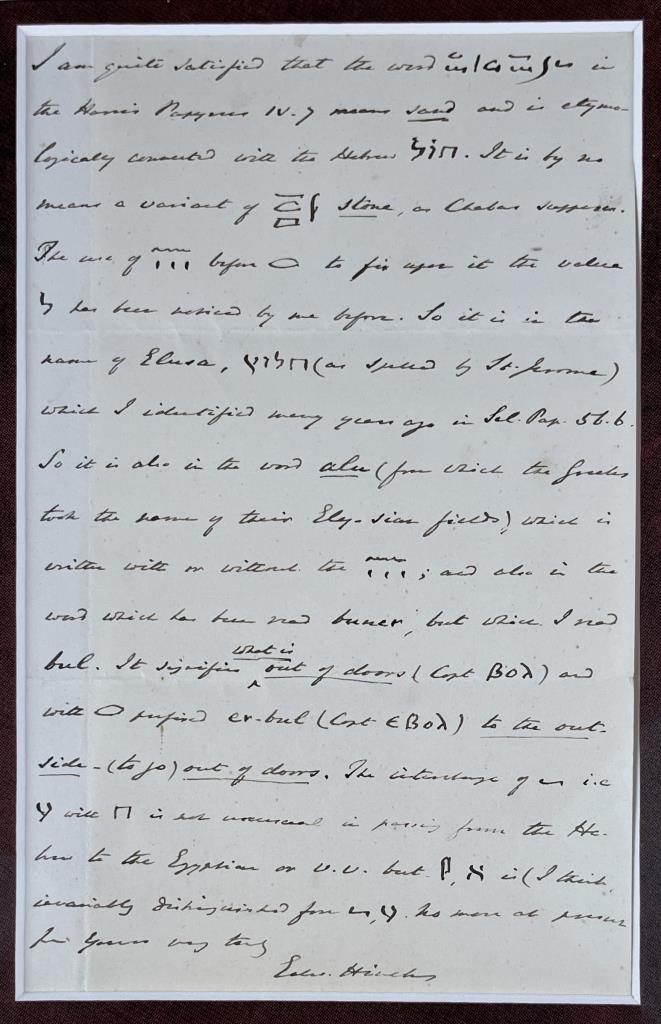 I am quite satisfied that the word in
the Harris Papyrus IV. 7 means sand and is etymo-
logically connected with the Hebrew חול. It is by no
means a variant of stone, as Chabas supposes.
The use of before to fix upon it the value
ל has been noticed by me before. So it is in the
name of Elusa, חלוץ (as spelled by St. Jerome)
which I identified many years ago in Sel. Pap. 56.6.
So it is also in the word alu (from which the Greeks
took the name of their Ely-sian fields), which is
written with or without the ; and also in the
word which has been read buner, but which I read
bul. It signifies what is out of doors (Copt ⲂⲞⲖ) and
with prefixed er-bul (Copt ⲈⲂⲞⲖ) to the out-
side - (to go) out of doors. The interchange of i.e
ע with ח is not unusual in passing from the He-
brew to the Egyptian or v.v. but א is (I think,
invariably distinguished from ע. No more at present
from Yours very truly
Edw. Hincks